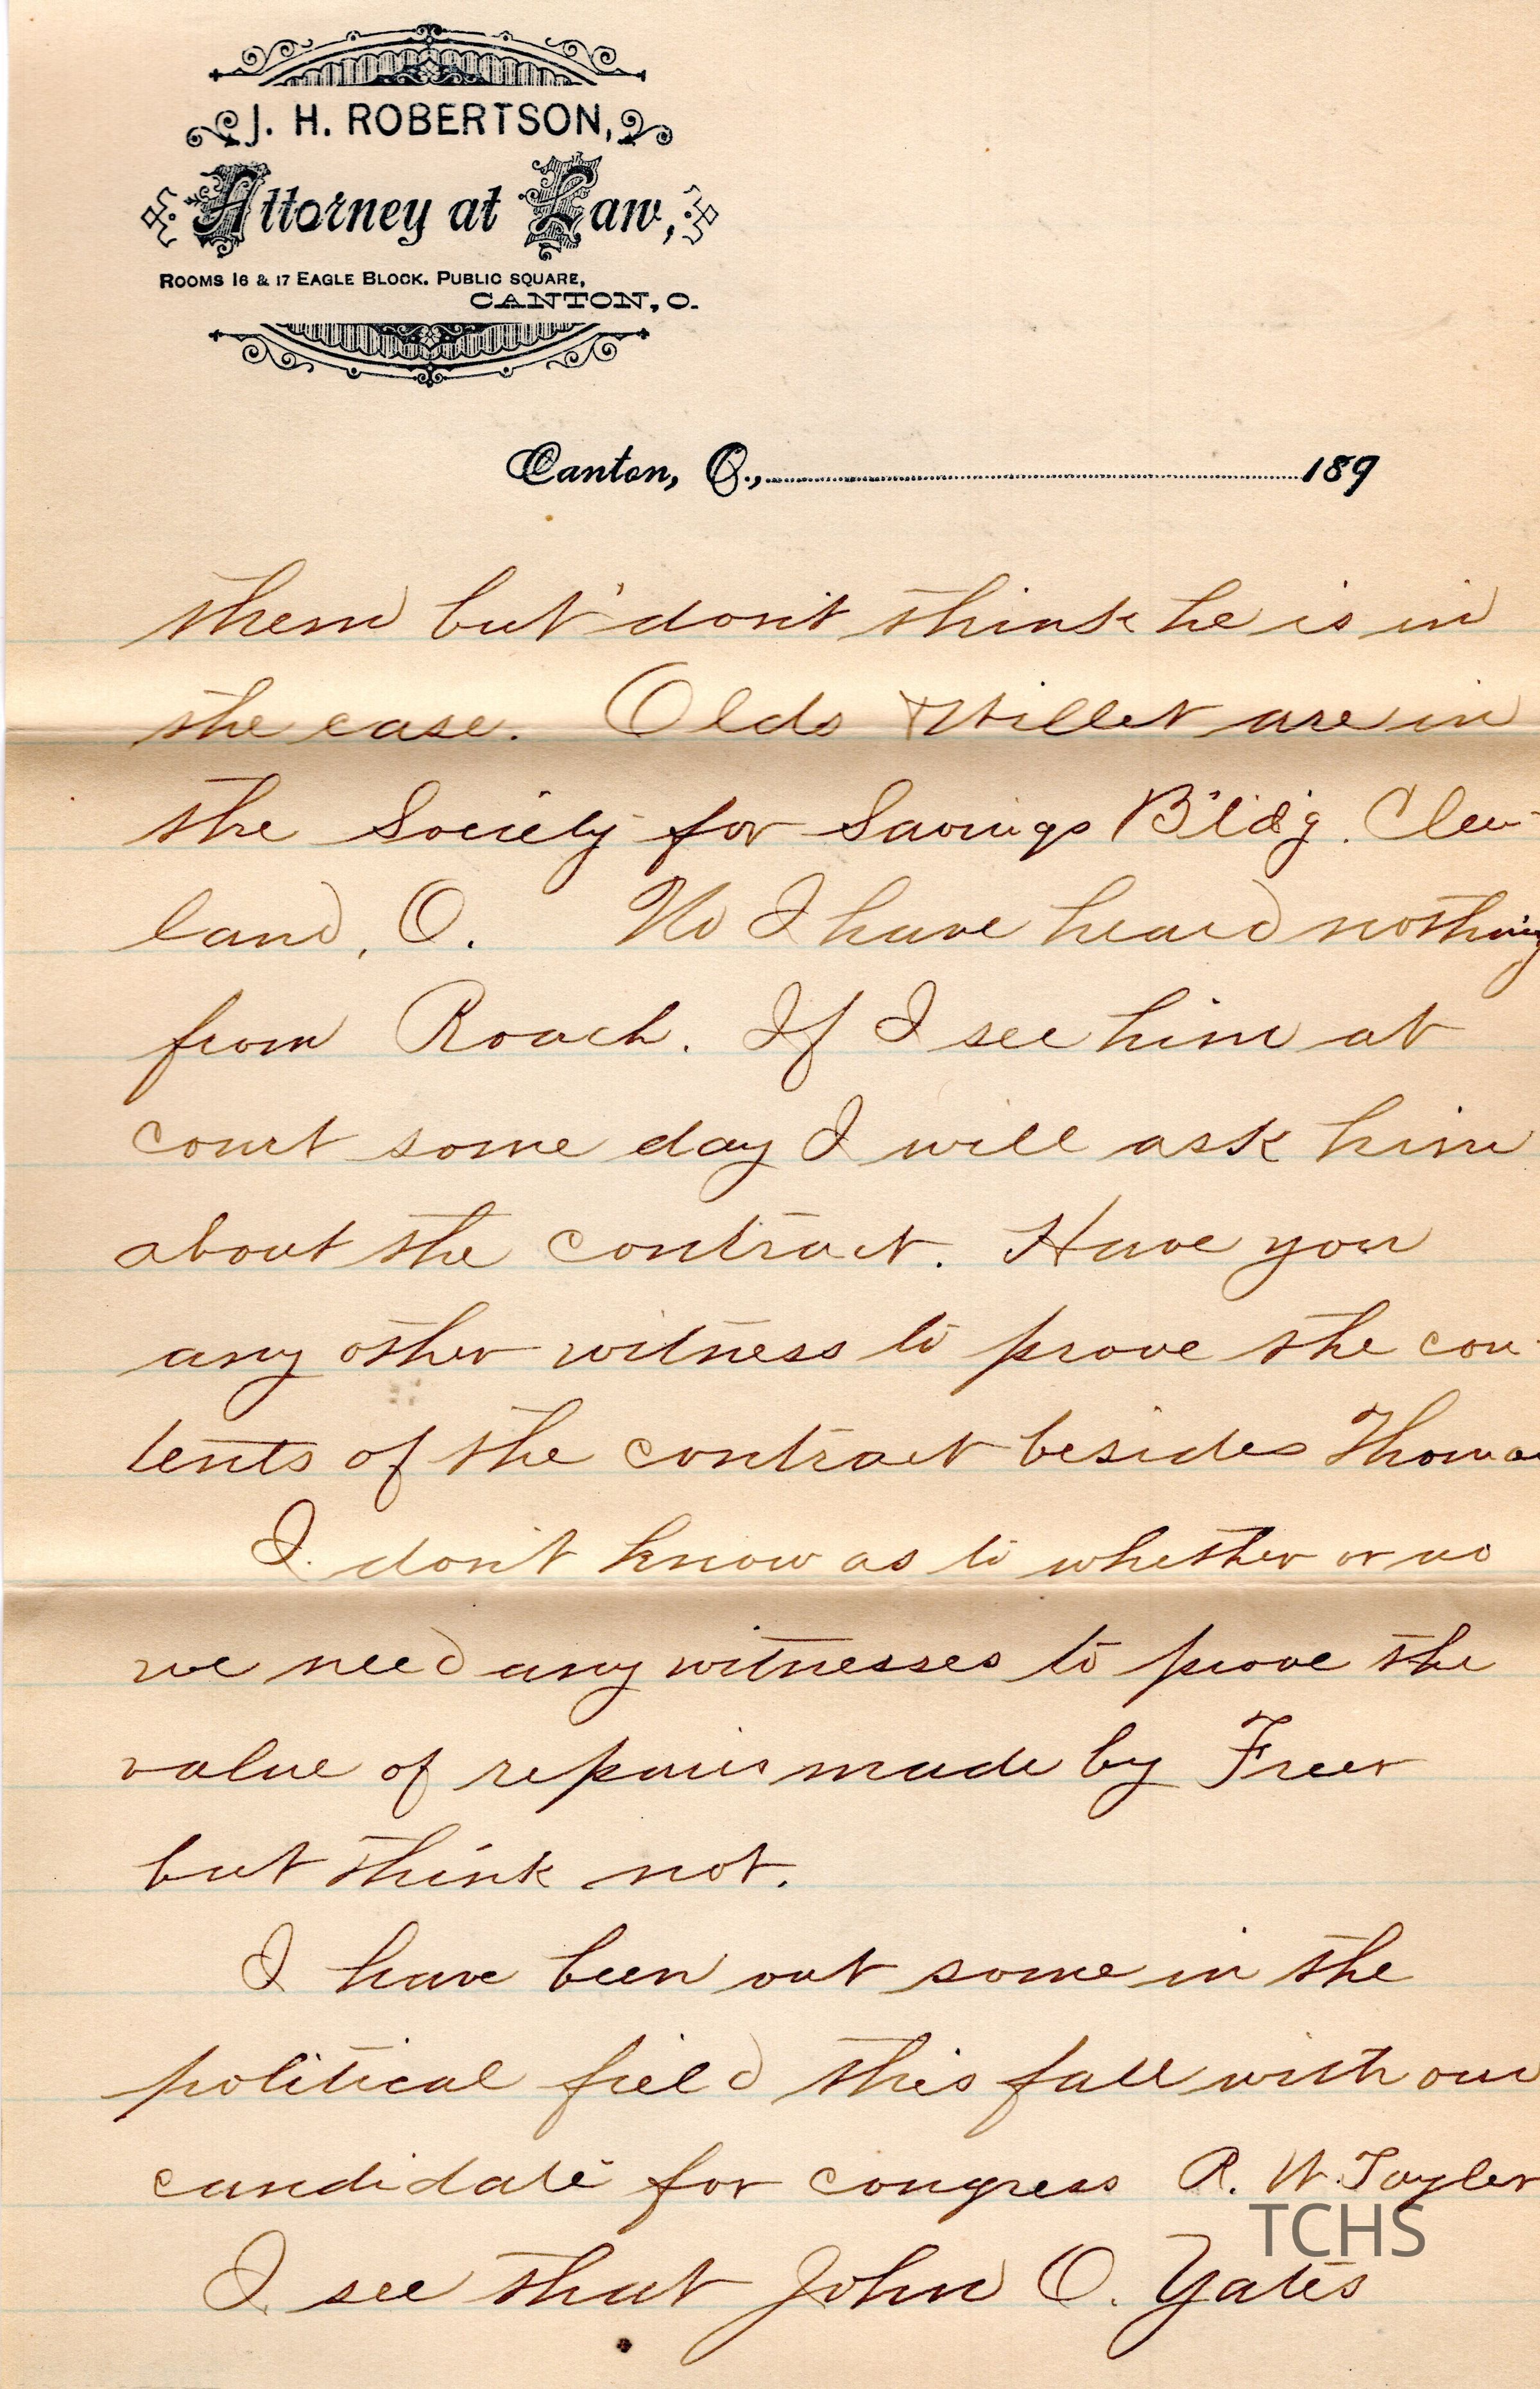 J. H. ROBERTSON,
Attorney at Law,
ROOMS 16 & 17 EAGLE BLOCK. PUBLIC SQUARE,
CANTON, O.
Canton, O., 189
them but don't think he is in
the case. Olds & Willet are in
the Society for Savings B'ld'g. Clev-
land, O. No I have heard nothing
from Roach. If I see him at
court some day I will ask him
about the contract. Have you
any other witness to prove the con-
tents of the contract besides Thomas
I don't know as to whether or no
we need any witnesses to prove the
value of repairs made by Freer
but think not.
I have been out some in the
political field this fall with our
candidate for congress R. W. Tayler
I see that John O. Yates
TCHS